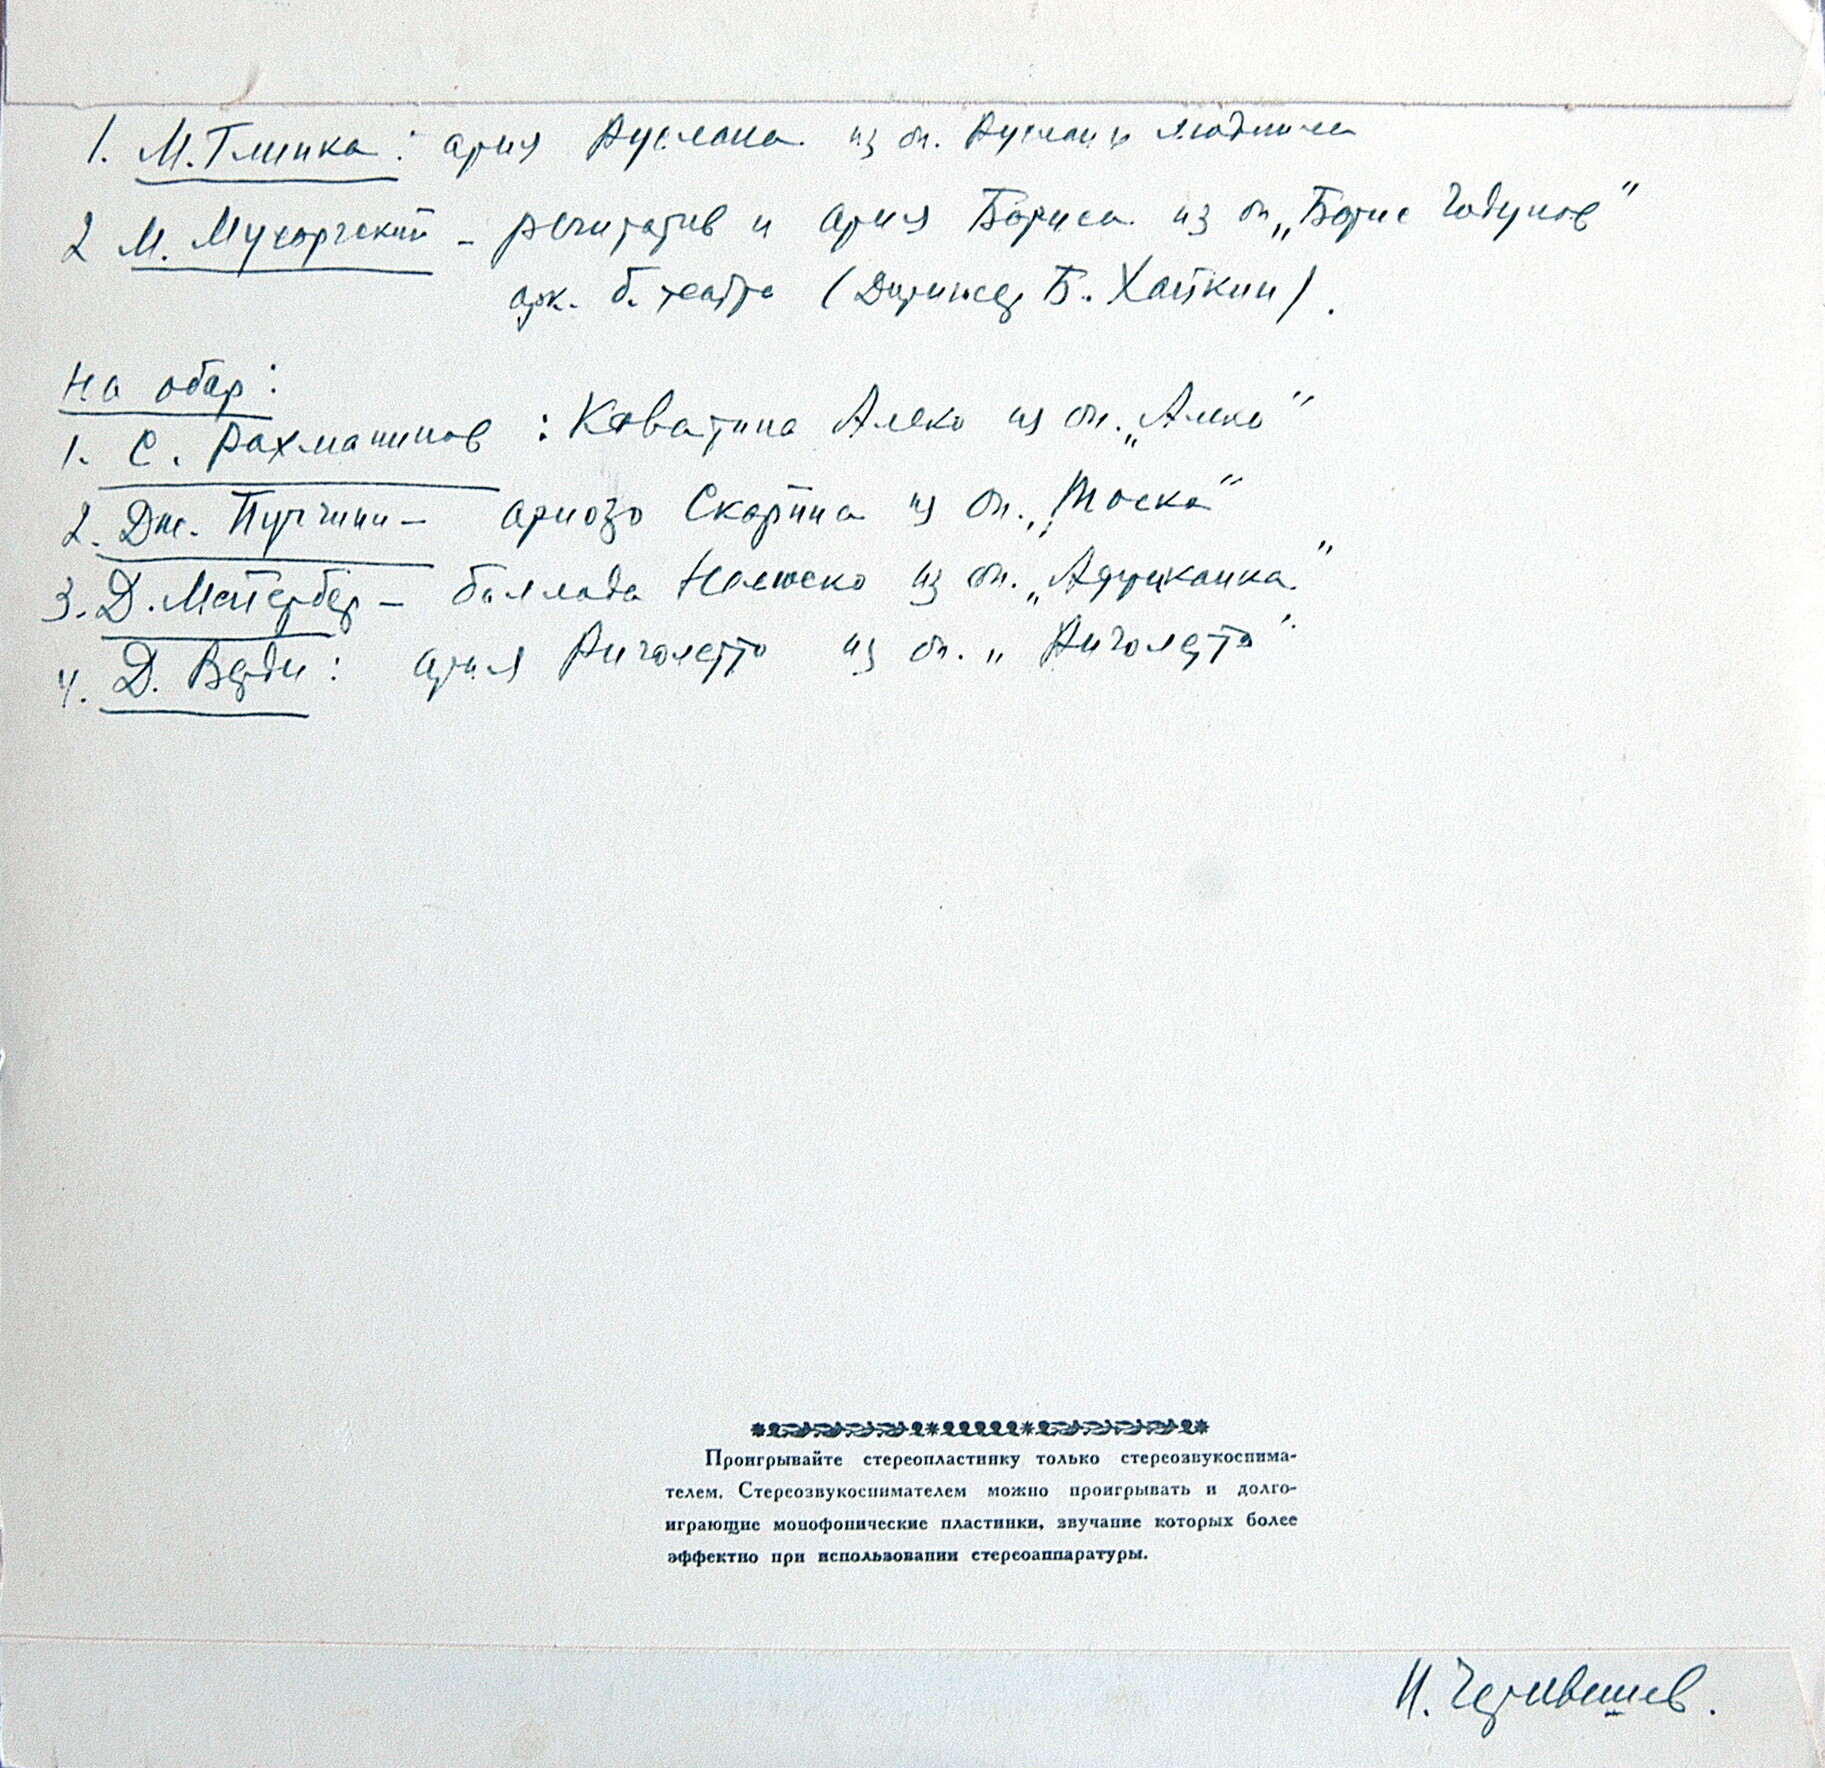 1. М. Глинка: ария Руслана из оп. Руслан и Людмила
2 М. Мусоргский - речитатив и ария Бориса из оп „Борис Годунов"
орк. б. театра (Дирижер Б. Хайкин).
На обор:
1. С. Рахманинов : Каватина Алеко из оп. „Алеко"
2. Дж. Пуччини - ариозо Скарпиа из оп. „Тоска"
3. Д. Мейербер - баллада Нелюско из оп. „Африканка"
4. Д. Верди: ария Риголетто из оп. „Риголетто"
Проигрывайте стереопластинку только стереозвукоснима-
телем. Стереозвукоснимателем можно проигрывать и долго-
играющие монофонические пластинки, звучание которых более
эффектно при использовании стереоаппаратуры.
И.